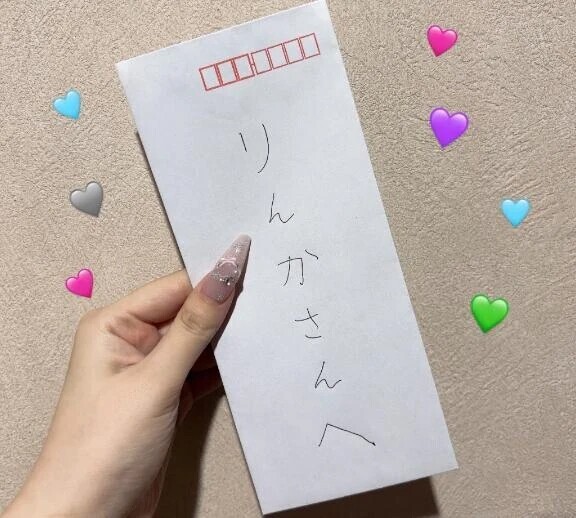 りんかさんへ